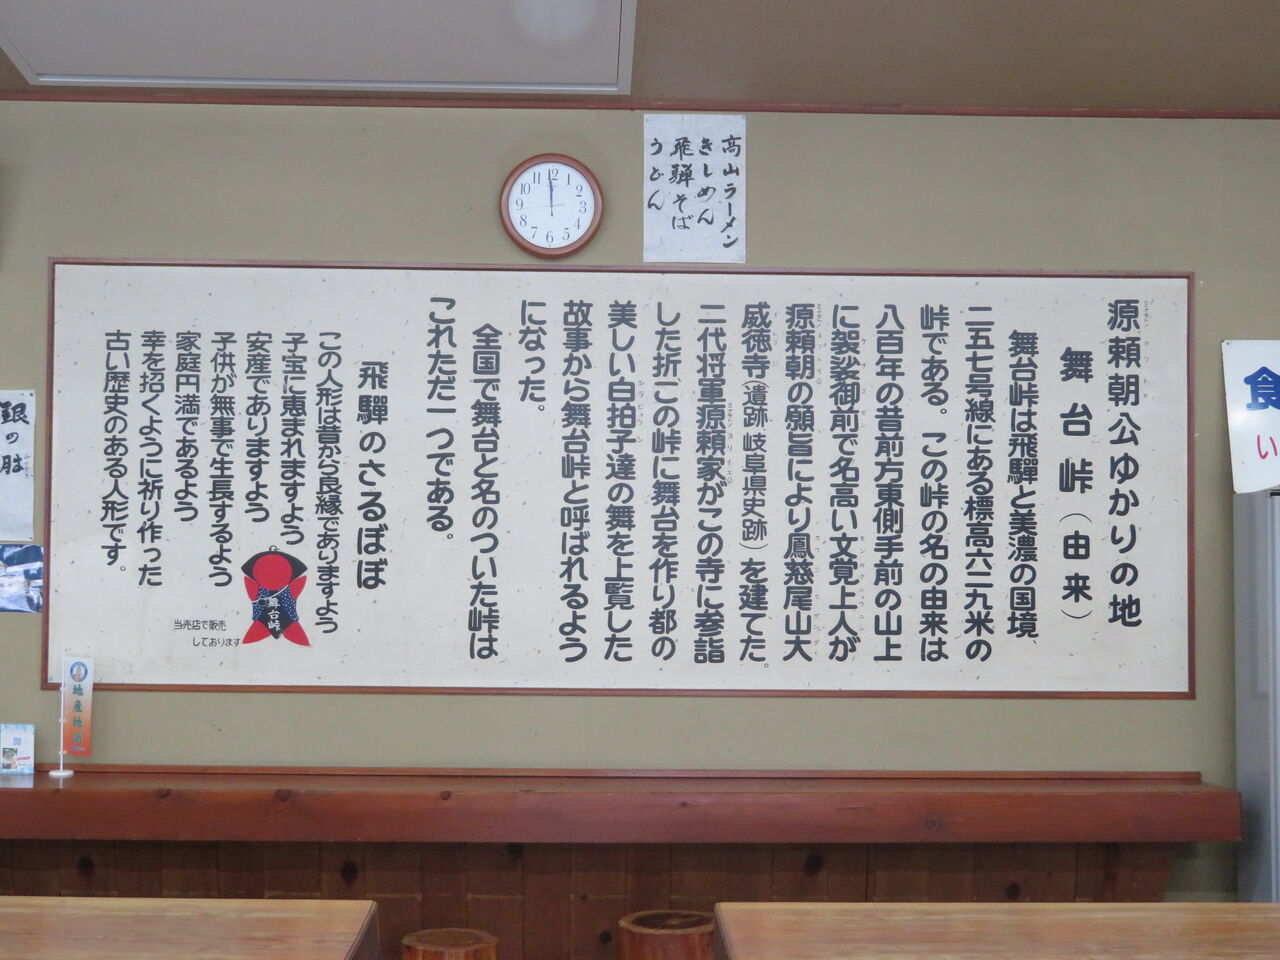 高山ラーメン
きしめん
飛騨そば
うどん
11 12 1
10 2
9 3
8 4
7 6 5
源頼朝公ゆかりの地
舞台峠（由来）
舞台峠は飛驒と美濃の国境、
二五七号線にある標高六二九米の
峠である。この峠の名の由来は
八百年の昔前方東側手前の山上
に袈裟御前で名高い文覚上人が
源頼朝の願旨により鳳慈尾山大
威徳寺（遺跡 岐阜県史跡）を建てた。
二代将軍源頼家がこの寺に参詣
した折、この峠に舞台を作り都の
美しい白拍子達の舞を上覧した
故事から舞台峠と呼ばれるよう
になった。
全国で舞台と名のついた峠は
これただ一つである。
飛驒のさるぼぼ
この人形は昔から良縁でありますよう
子宝に恵まれますよう
安産でありますよう
子供が無事で生長するよう
家庭円満であるよう
幸を招くように祈り作った
古い歴史のある人形です。
舞台峠
当売店で販売
しております
食
い
銀の
地産地消